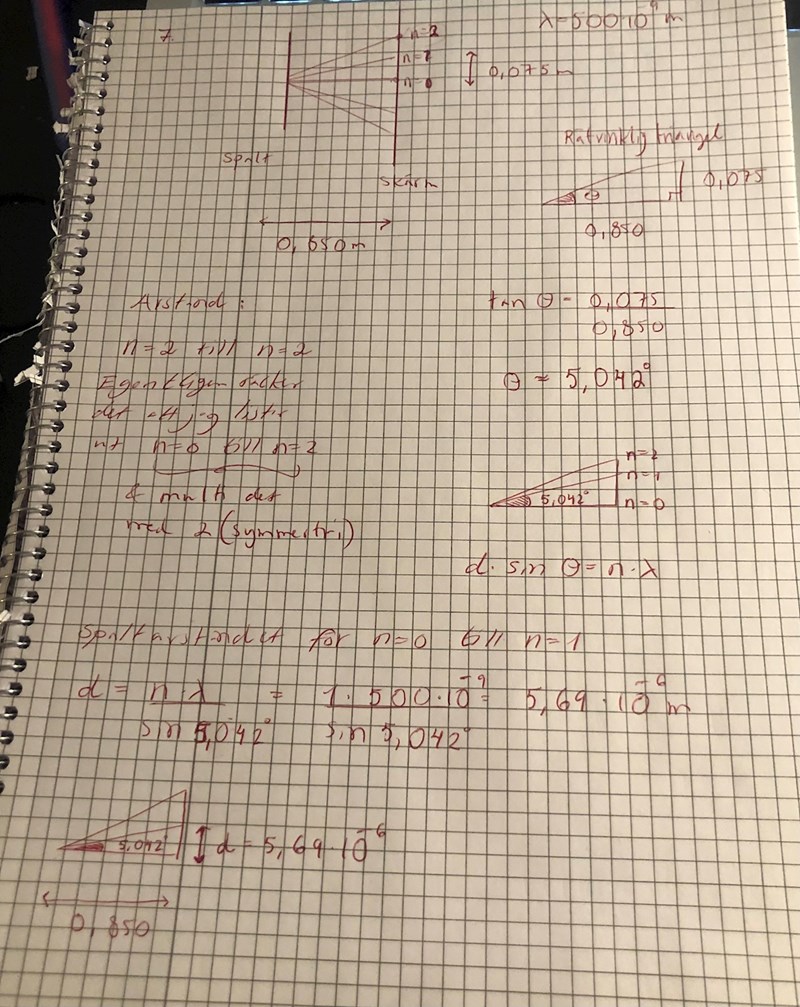 7.
λ = 500·10⁻⁹ m
n=2
n=1
n=0
0,075 m
Spalt
Skärm
0,850 m
Rätvinklig triangel
θ
0,075
0,850
Avstånd :
n=2 till n=2
Egentligen räcker
det att jag tittar
n=0 till n=2
& mult det
med 2 (symmetri)
tan θ = 0,075
0,850
θ = 5,042°
n=2
n=1
5,042°
n=0
d · sin θ = n · λ
Spaltavståndet för n=0 till n=1
d = n λ = 1 · 500·10⁻⁹ = 5,69 · 10⁻⁶ m
sin 5,042° sin 5,042°
5,042°
d = 5,69·10⁻⁶
0,850